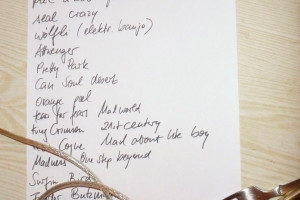 real crazy
wölfli (elektr. banjo)
Pretty Park
Can Soul desert
orange peel
tears for fears Mad world
King Crimson 21st century
Coyne Mad about the boy
Madness One step beyond
Surfin Bird